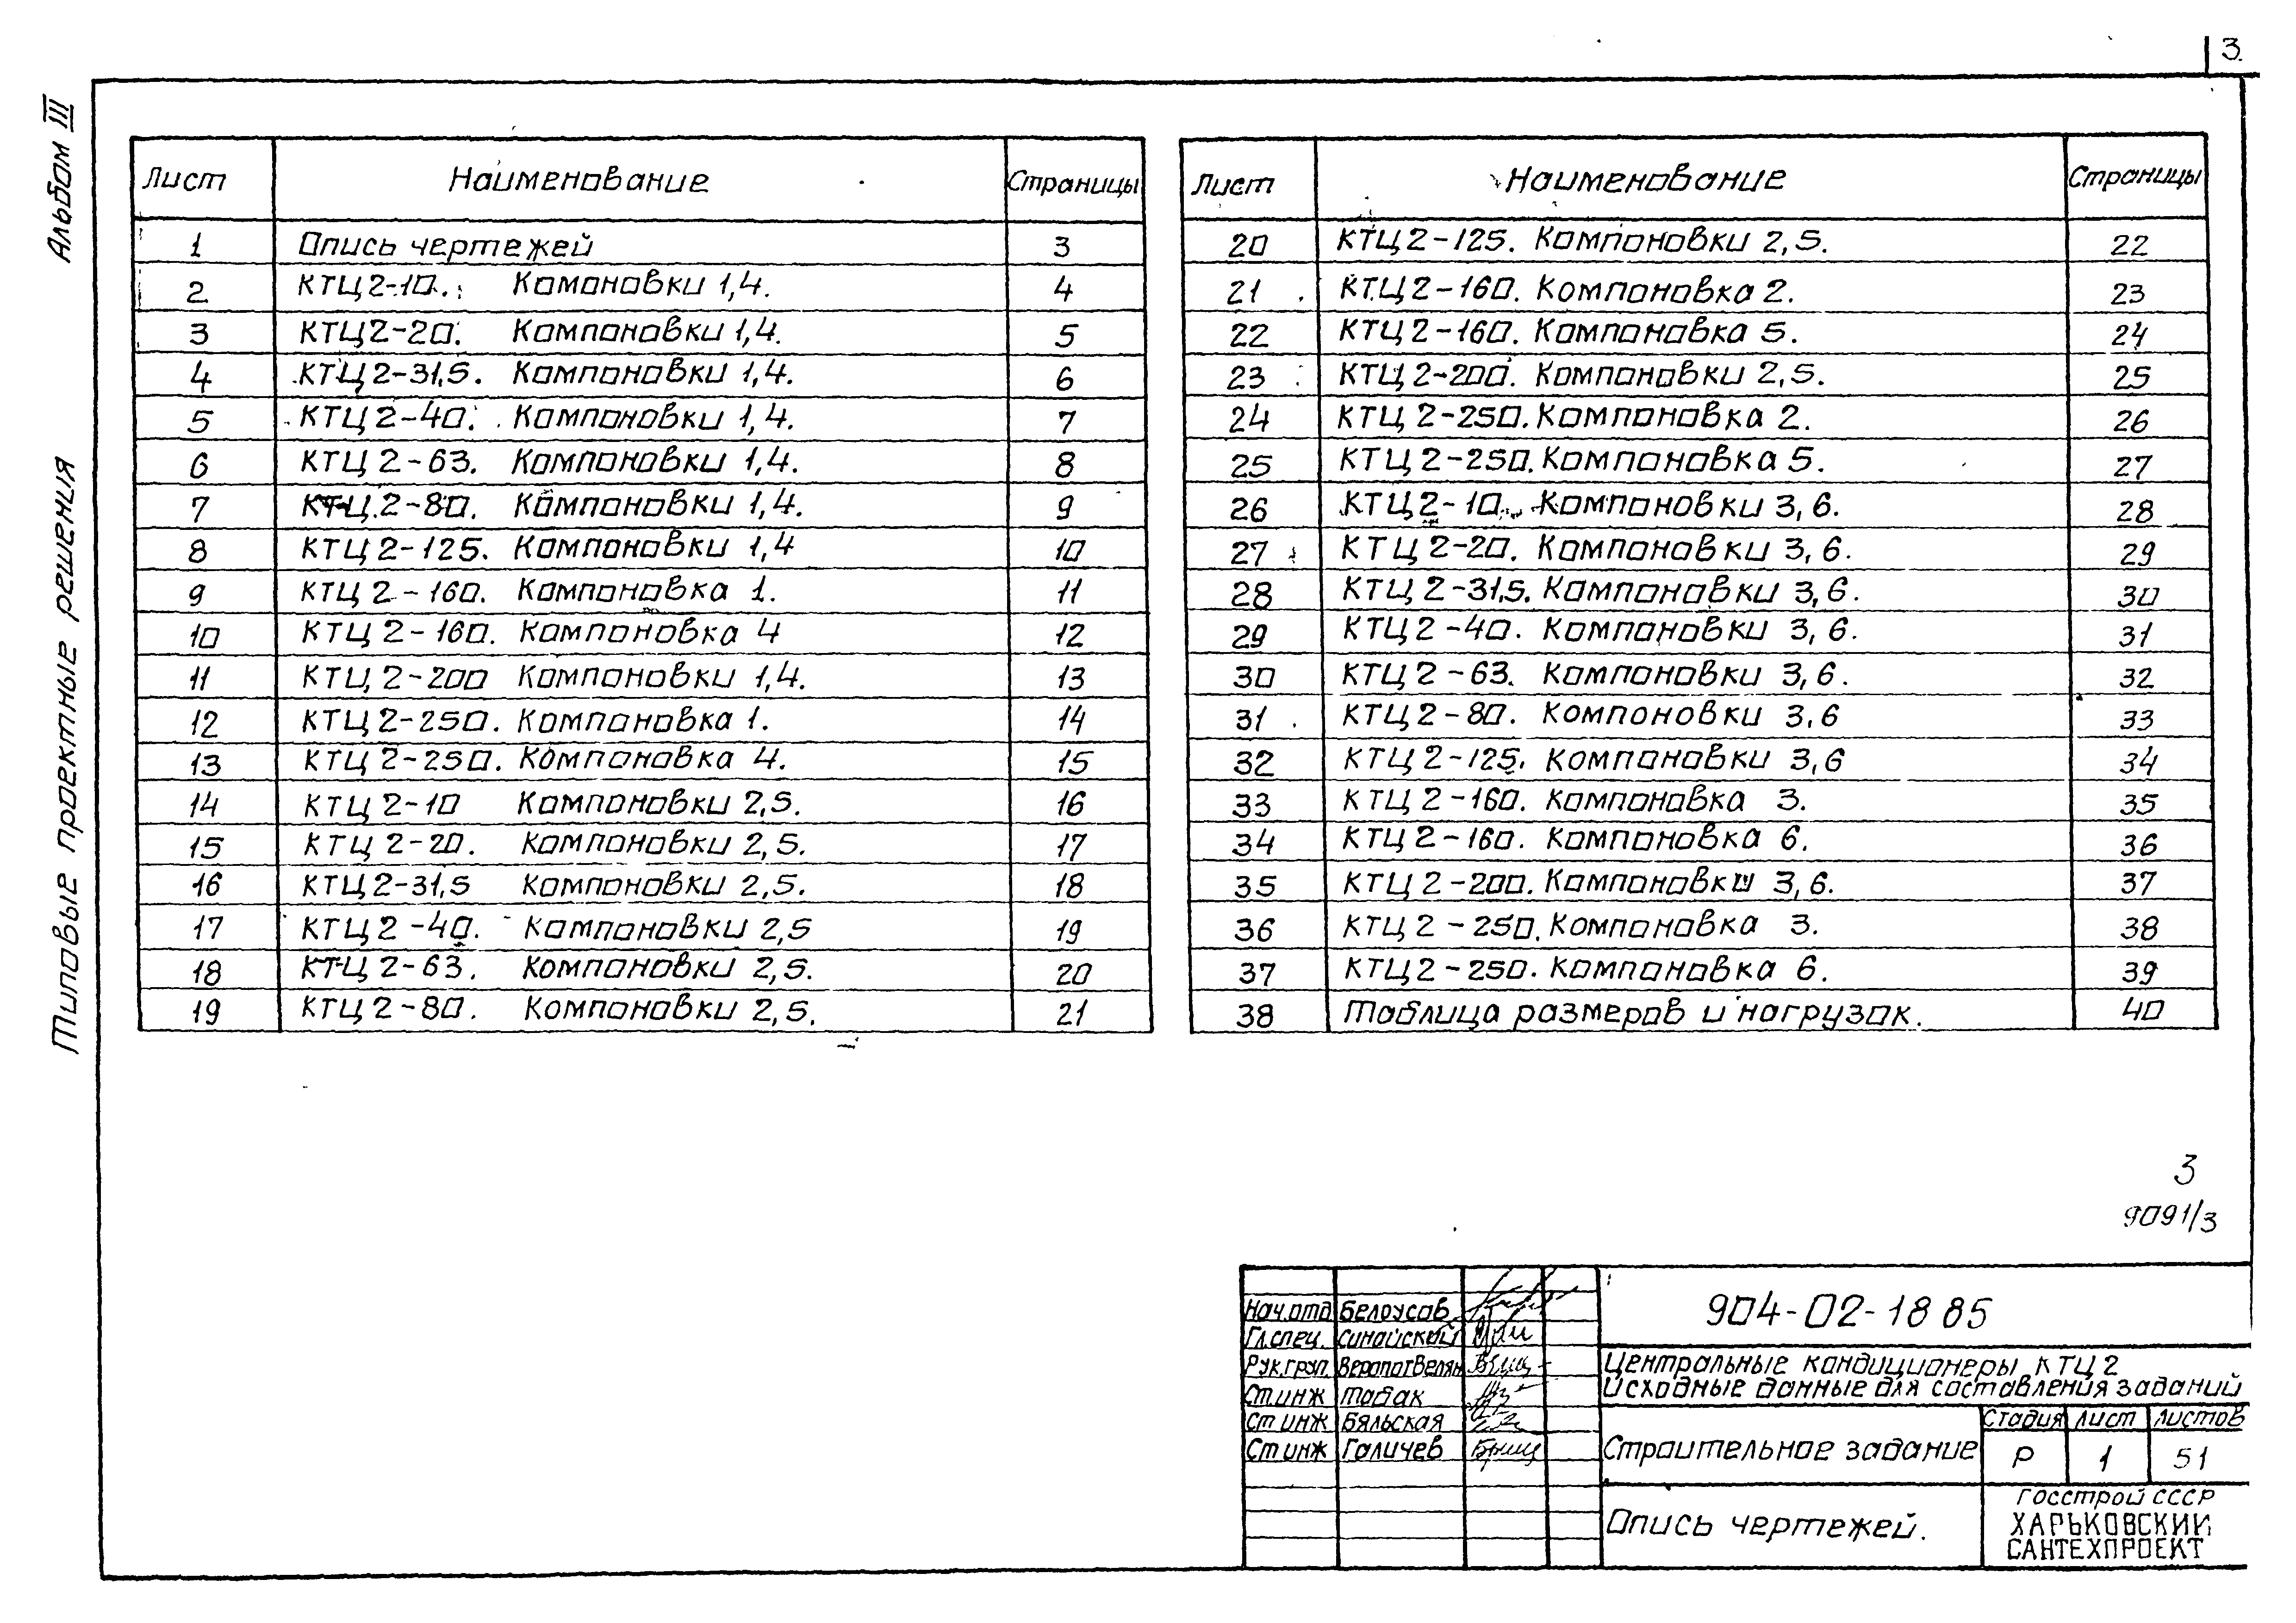 3.
Альбом III
Типовые проектные решения
Лист Наименование Страницы
1 Опись чертежей 3
2 КТЦ2-10. Комоновки 1,4. 4
3 КТЦ2-20. Компоновки 1,4. 5
4 КТЦ2-31,5. Компоновки 1,4. 6
5 КТЦ2-40. Компоновки 1,4. 7
6 КТЦ2-63. Компоновки 1,4. 8
7 КТЦ2-80. Компоновки 1,4. 9
8 КТЦ2-125. Компоновки 1,4 10
9 КТЦ2-160. Компоновка 1. 11
10 КТЦ2-160. Компоновка 4 12
11 КТЦ2-200 Компоновки 1,4. 13
12 КТЦ2-250. Компоновка 1. 14
13 КТЦ2-250. Компоновка 4. 15
14 КТЦ2-10 Компоновки 2,5. 16
15 КТЦ2-20. Компоновки 2,5. 17
16 КТЦ2-31,5 Компоновки 2,5. 18
17 КТЦ2-40. Компоновки 2,5 19
18 КТЦ2-63. Компоновки 2,5. 20
19 КТЦ2-80. Компоновки 2,5. 21
Лист Наименование Страницы
20 КТЦ2-125. Компоновки 2,5. 22
21 КТЦ2-160. Компоновка 2. 23
22 КТЦ2-160. Компоновка 5. 24
23 КТЦ2-200. Компоновки 2,5. 25
24 КТЦ2-250. Компоновка 2. 26
25 КТЦ2-250. Компоновка 5. 27
26 КТЦ2-10. Компоновки 3,6. 28
27 КТЦ2-20. Компоновки 3,6. 29
28 КТЦ2-31,5. Компоновки 3,6. 30
29 КТЦ2-40. Компоновки 3,6. 31
30 КТЦ2-63. Компоновки 3,6. 32
31 КТЦ2-80. Компоновки 3,6 33
32 КТЦ2-125. Компоновки 3,6 34
33 КТЦ2-160. Компоновка 3. 35
34 КТЦ2-160. Компоновка 6. 36
35 КТЦ2-200. Компоновки 3,6. 37
36 КТЦ2-250. Компоновка 3. 38
37 КТЦ2-250. Компоновка 6. 39
38 Таблица размеров и нагрузок. 40
3
9091/3
Нач.отд Белоусов
Гл.спец. Синайский
Рук.груп. Веропотвелян
Ст.инж Табак
Ст.инж Бяльская
Ст.инж Галичев
904-02-18 85
Центральные кондиционеры КТЦ2
Исходные данные для составления заданий
Строительное задание
Стадия Лист Листов
Р 1 51
Опись чертежей.
Госстрой СССР
ХАРЬКОВСКИЙ
САНТЕХПРОЕКТ